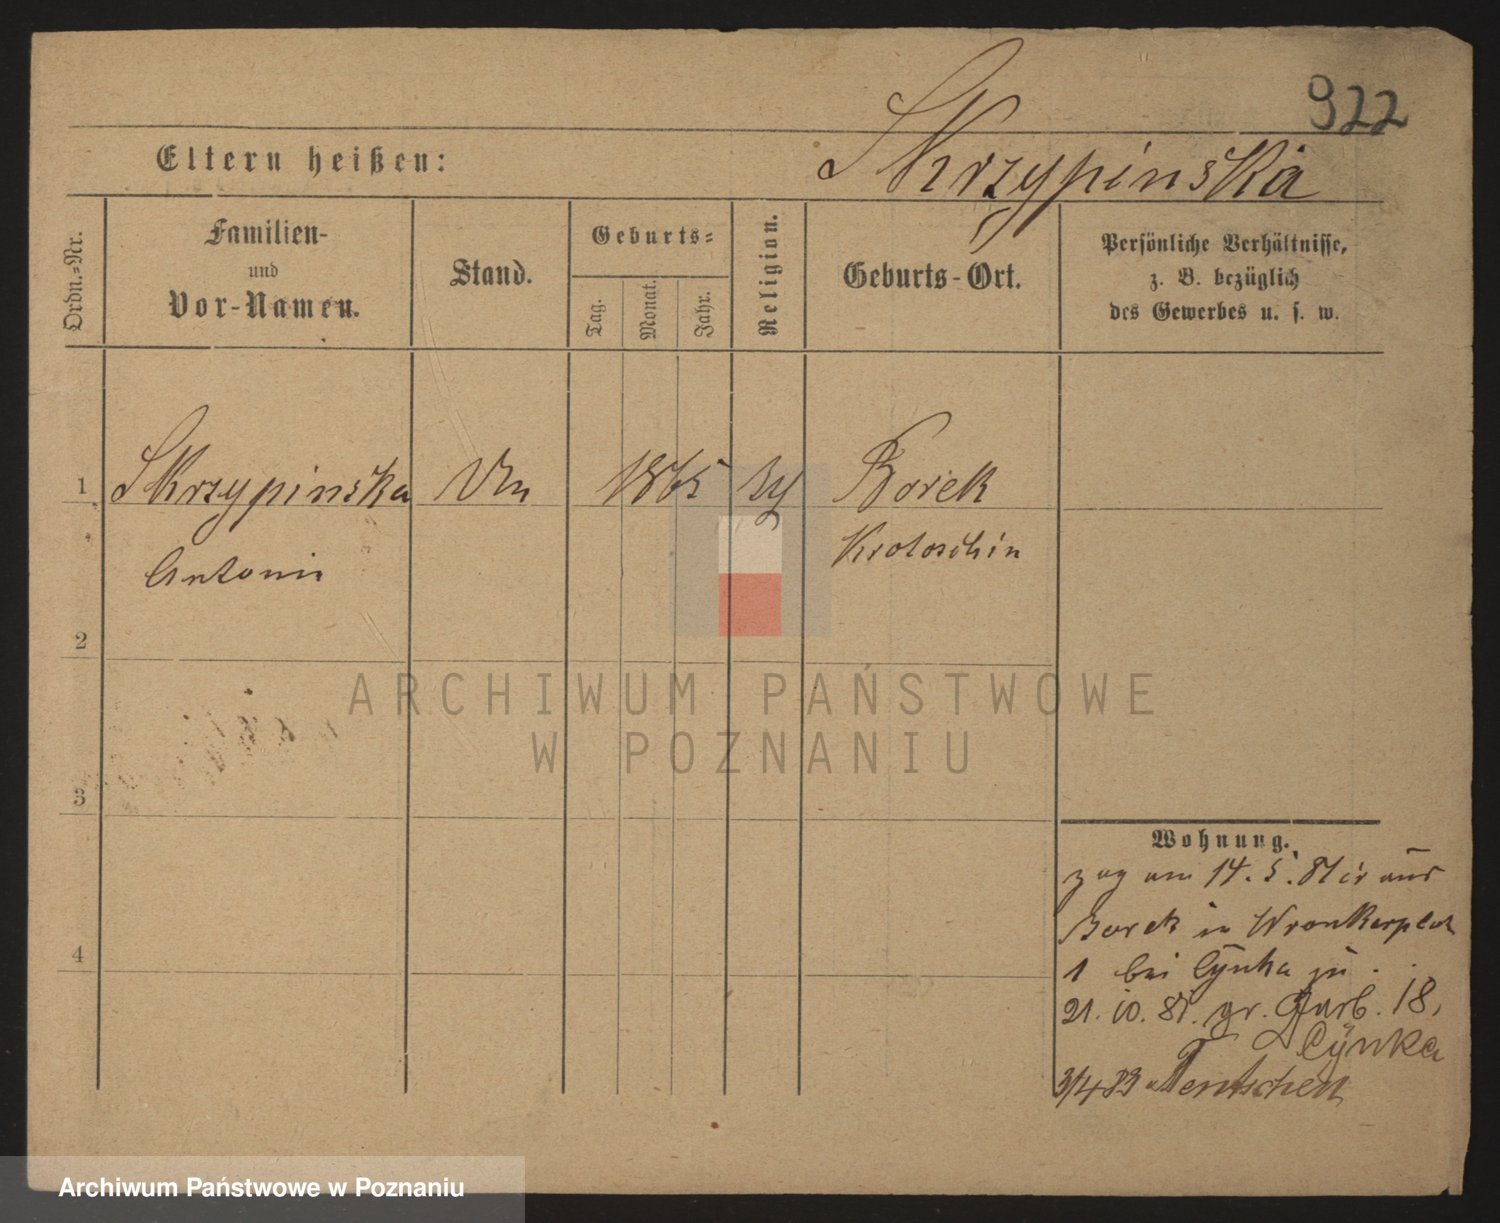 922
Skrzypinska
Eltern heißen:
Ordn.=Nr.
Familien-
und
Vor-Namen.
Stand.
Geburts=
Tag.
Monat.
Jahr.
Religion.
Geburts-Ort.
Persönliche Verhältnisse,
z. B. bezüglich
des Gewerbes u. s. w.
1 Skrzypinska 1865 Borek
Antonie Krotoschin
2
3
4
Wohnung.
zog am 14. 5. aus
Borek in Wronkerplatz
1 bei Cynka zu
21. 10. 81. gr. Garb. 18,
Cynka
3/4 83 Bentschen
ARCHIWUM PAŃSTWOWE
W POZNANIU
Archiwum Państwowe w Poznaniu